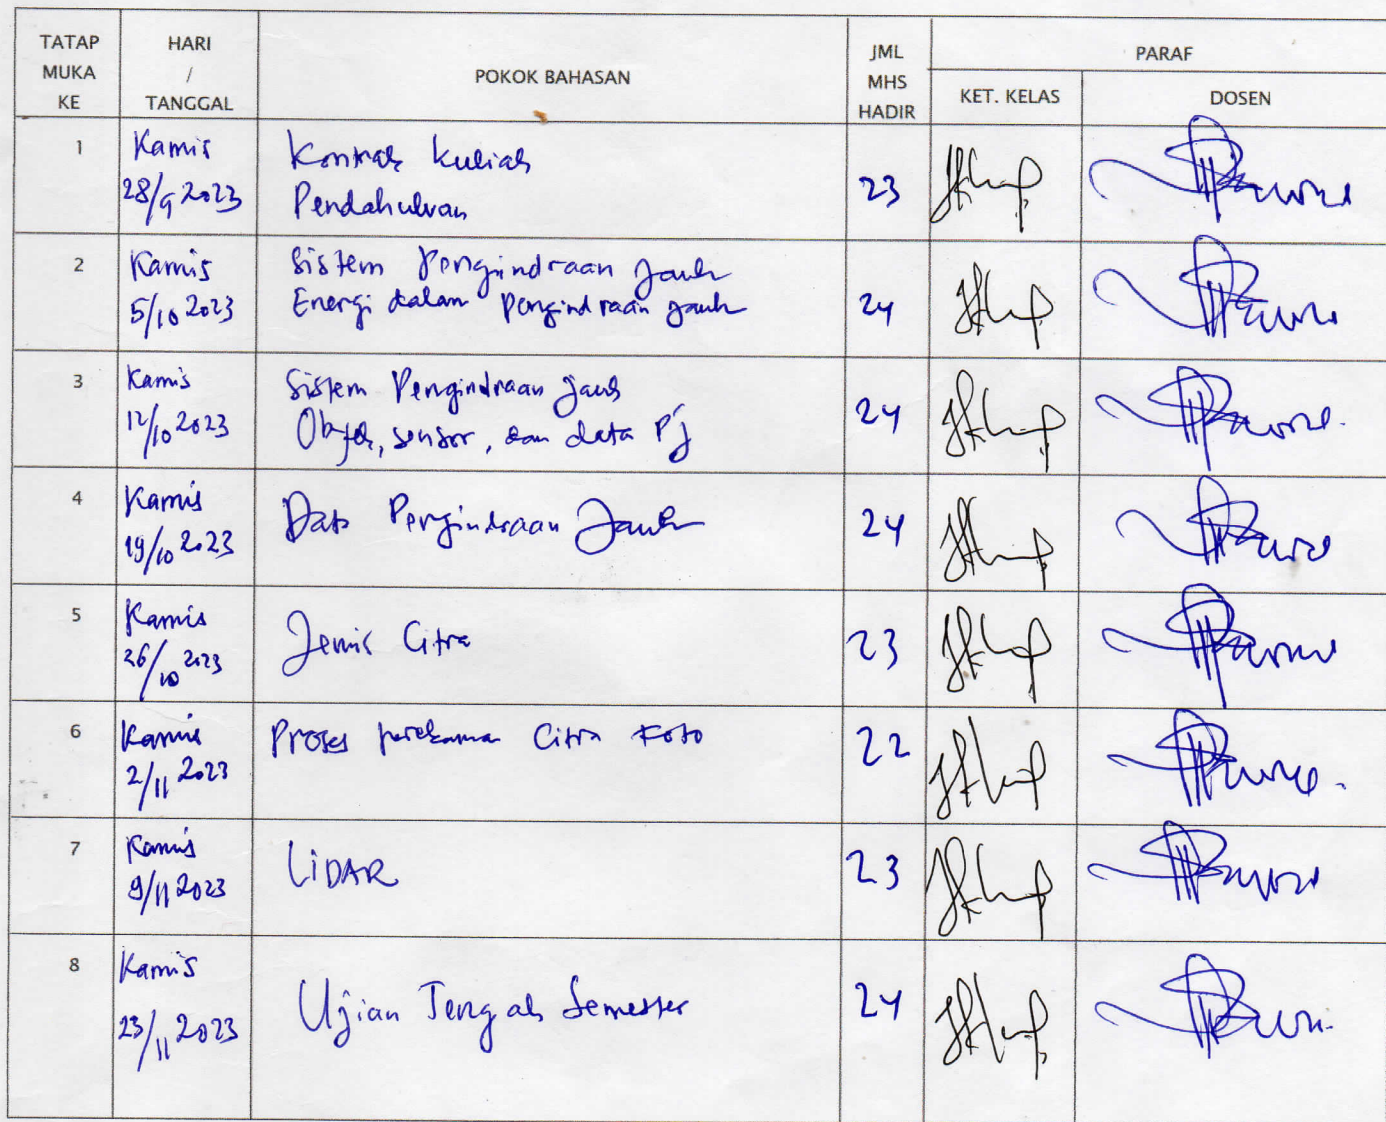 TATAP MUKA KE
HARI / TANGGAL
POKOK BAHASAN
JML MHS HADIR
PARAF
KET. KELAS
DOSEN
1
Kamis
28/9 2023
Kontrak kuliah
Pendahuluan
23
2
Kamis
5/10 2023
Sistem Pengindraan Jauh
Energi dalam Pengindraan jauh
24
3
Kamis
12/10 2023
Sistem Pengindraan jauh
Objek, sensor, dan data Pj
24
4
Kamis
19/10 2023
Data Pengindraan Jauh
24
5
Kamis
26/10 2023
Jenis Citra
23
6
Kamis
2/11 2023
Proses perekaman Citra Foto
22
7
Kamis
9/11 2023
LiDAR
23
8
Kamis
23/11 2023
Ujian Tengah Semester
24